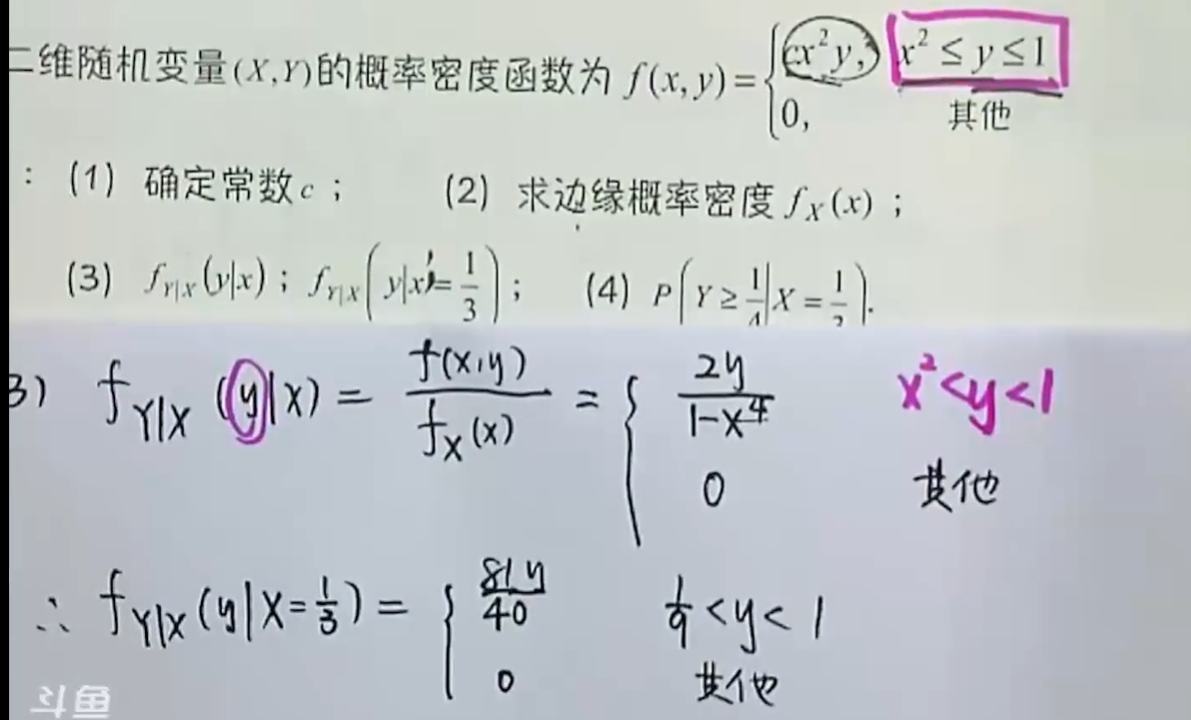 二维随机变量(X,Y)的概率密度函数为 f(x,y)={cx²y, x²≤y≤1
0, 其他
: (1) 确定常数c； (2) 求边缘概率密度 f_X(x)；
(3) f_{Y|X}(y|x)；f_{Y|X}(y|x=1/3)； (4) P(Y≥1/4|X=1/2).
3) f_{Y|X}(y|x)=f(x,y)/f_X(x)={2y/(1-x⁴) x²<y<1
0 其他
∴ f_{Y|X}(y|X=1/3)={81y/40 1/9<y<1
0 其他
斗鱼